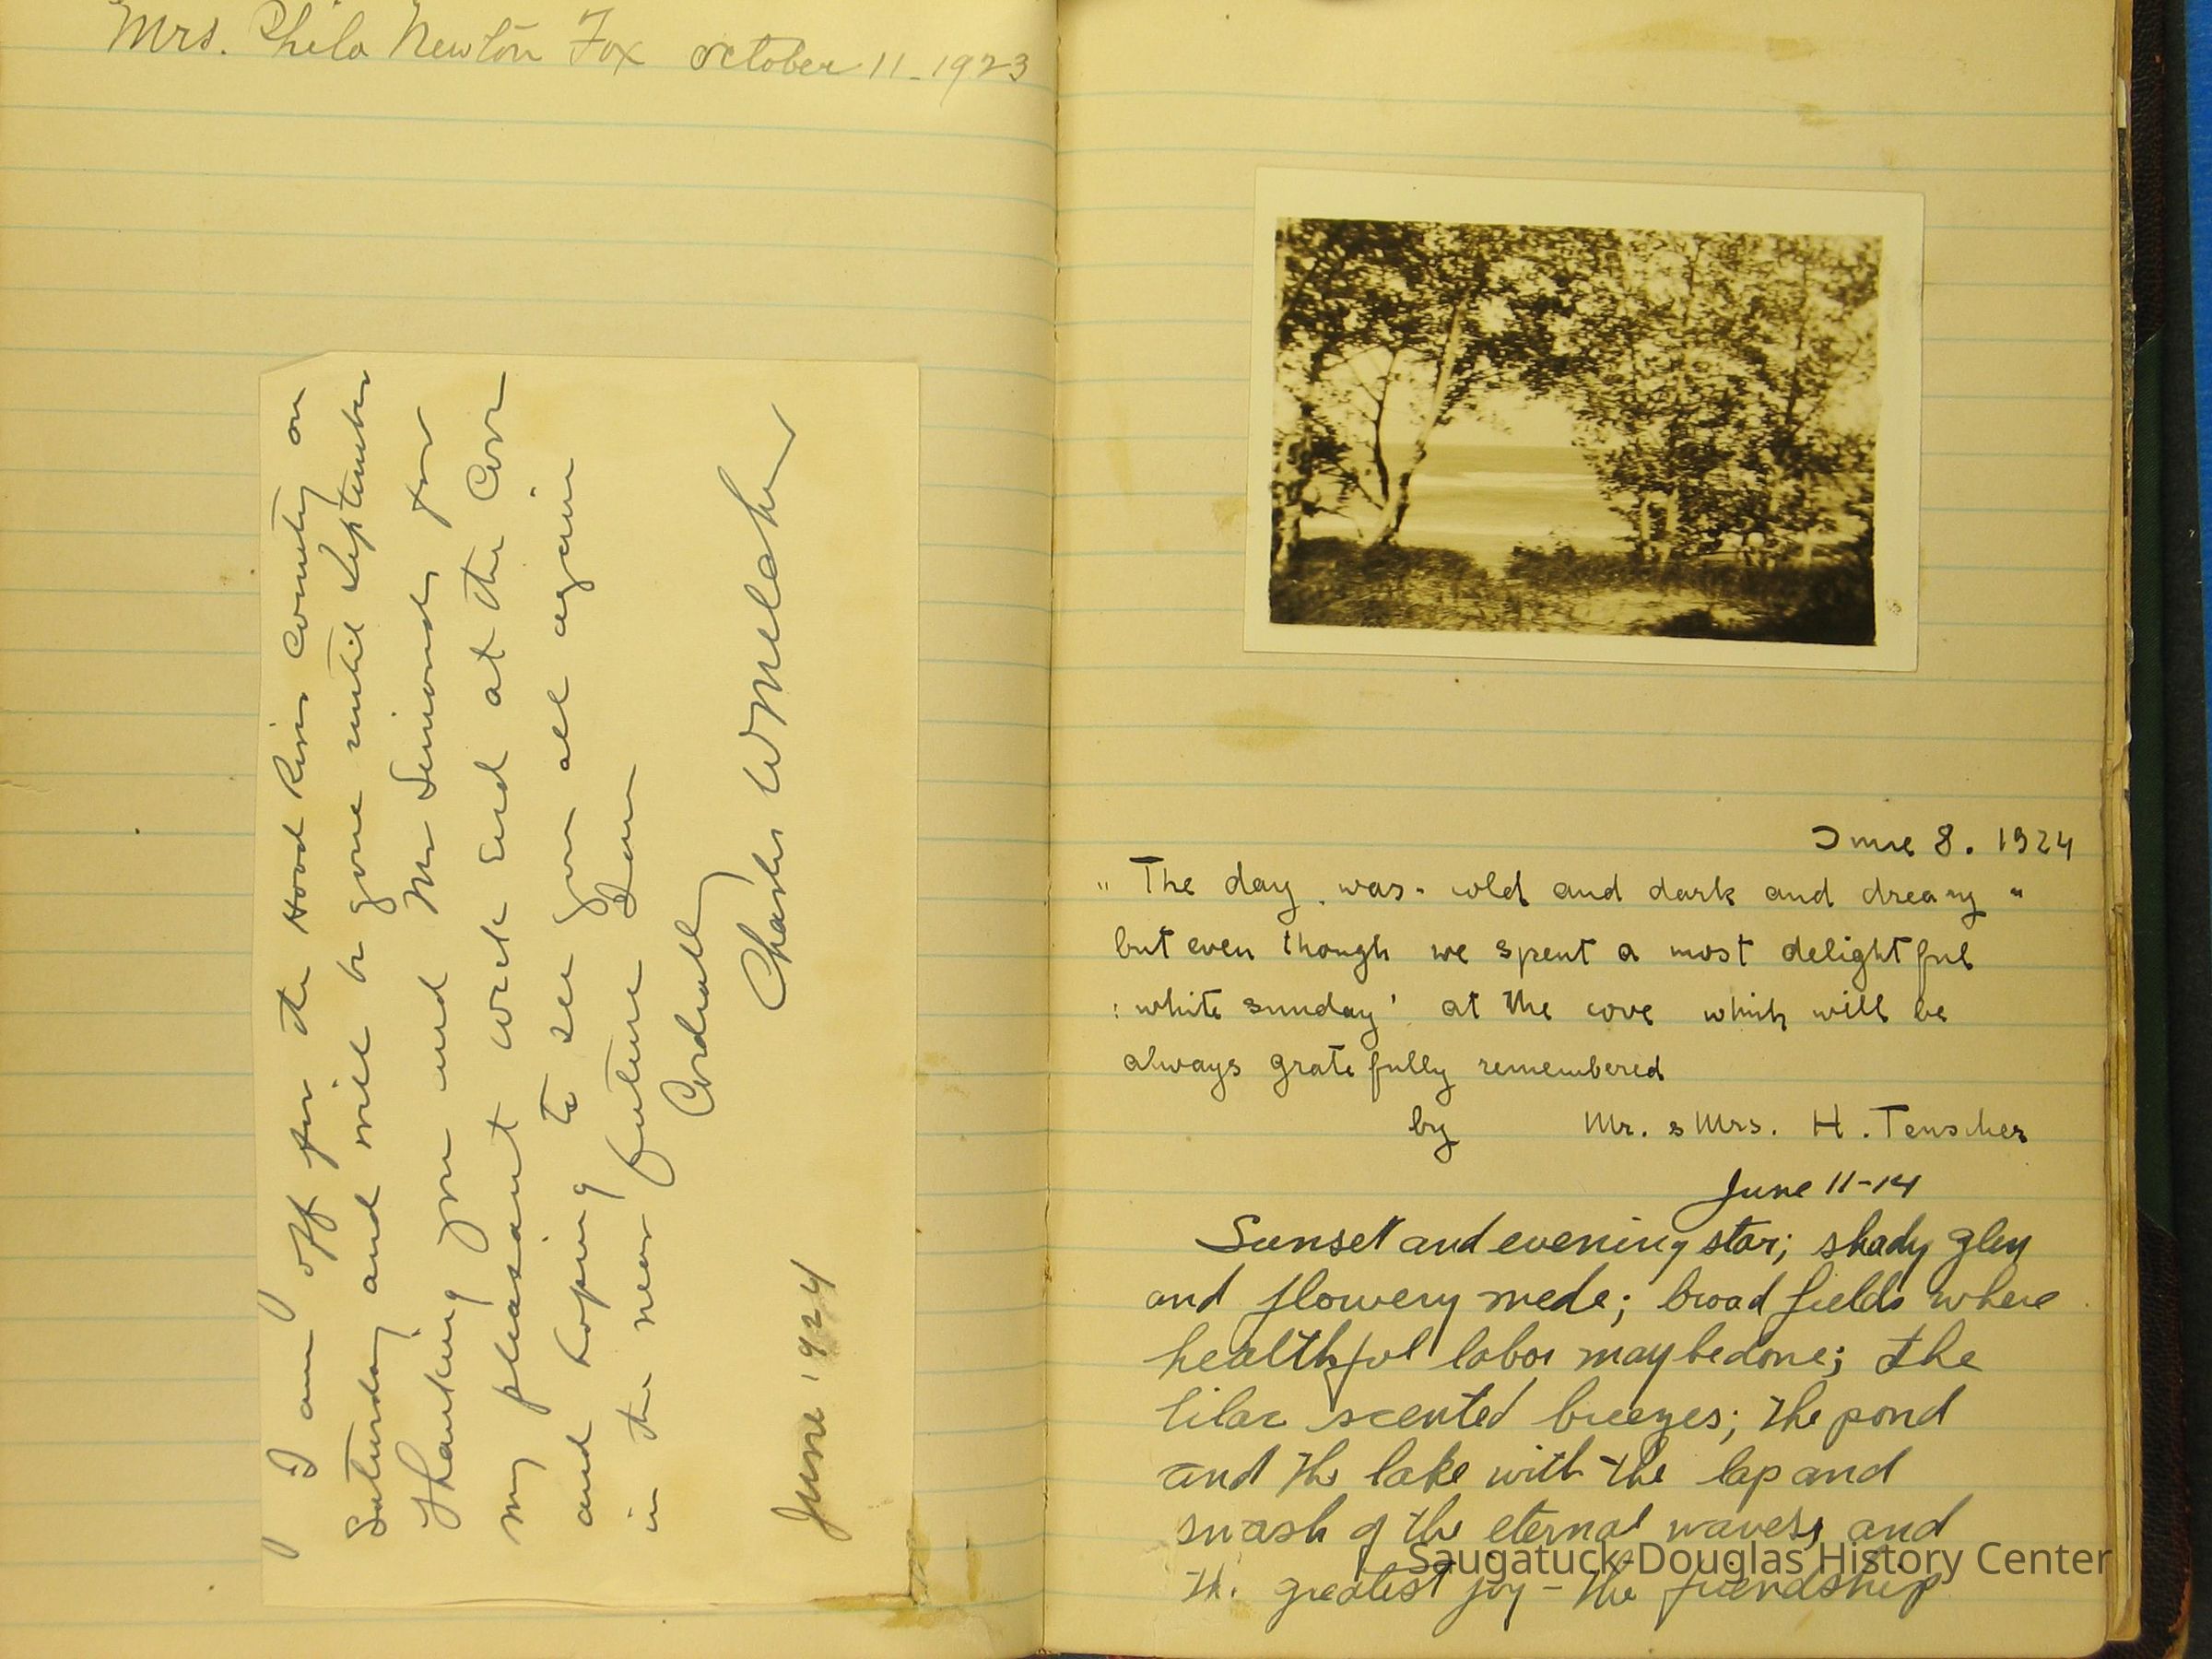 Mrs. Phila Newton Fox October 11-1923
I am off for the Hood River Country on
Saturday and will be gone until September
Thanking you and Mr Simonds for
my pleasant week end at the Cove
and hoping to see you all again
in the near future I am
Cordially
Charles W Melcher
June 1924
June 8. 1924
" The day was cold and dark and dreary "
but even though we spent a most delightful
' white sunday ' at the cove which will be
always gratefully remembered
by Mr. & Mrs. H. Tenscher
June 11-14
Sunset and evening star; shady glen
and flowery mede; broad fields where
healthful labor may be done; the
lilac scented breezes; the pond
and the lake with the lap and
swash of the eternal waves, and
the greatest joy - the friendship
Saugatuck-Douglas History Center